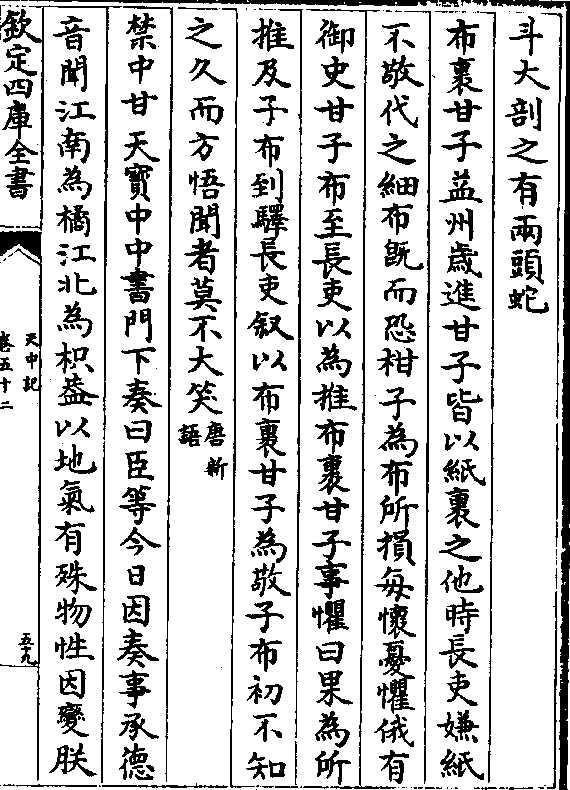 斗大剖之有兩頭蛇
布裹甘子益州歳進甘子皆以紙裹之他時長吏嫌紙
不敬代之細布既而恐柑子為布所損每懷憂懼俄有
御史甘子布至長吏以為推布裹甘子事懼曰果為所
推及子布到驛長吏叙以布裹甘子為敬子布初不知
之久而方悟聞者莫不大笑唐新
語
禁中甘天寳中中書門下奏曰臣等今日因奏事承德
音聞江南為橘江北為枳葢以地氣有殊物性因變朕
欽定四庫全書
天中記
卷五十二
五十九